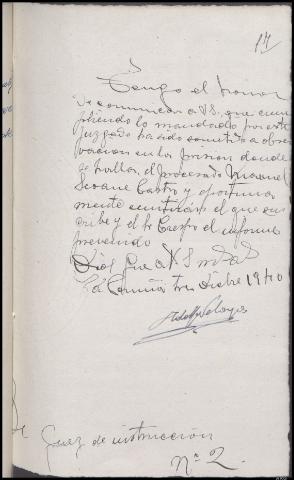 17
Tengo el honor
de comunicar a V.S. que cum
pliendo lo mandado por este
Juzgado ha sido sometido a obser
vación en la prision donde
se halla, el procesado Manuel
Seoane Castro y oportuna
mente emitirán el que sus
cribe y el Sr Crespo el informe
prevenido
Dios gue a V.S m. as
La Coruña tres Dicbre 1940
Sr Juez de instrucción
Nº 2.